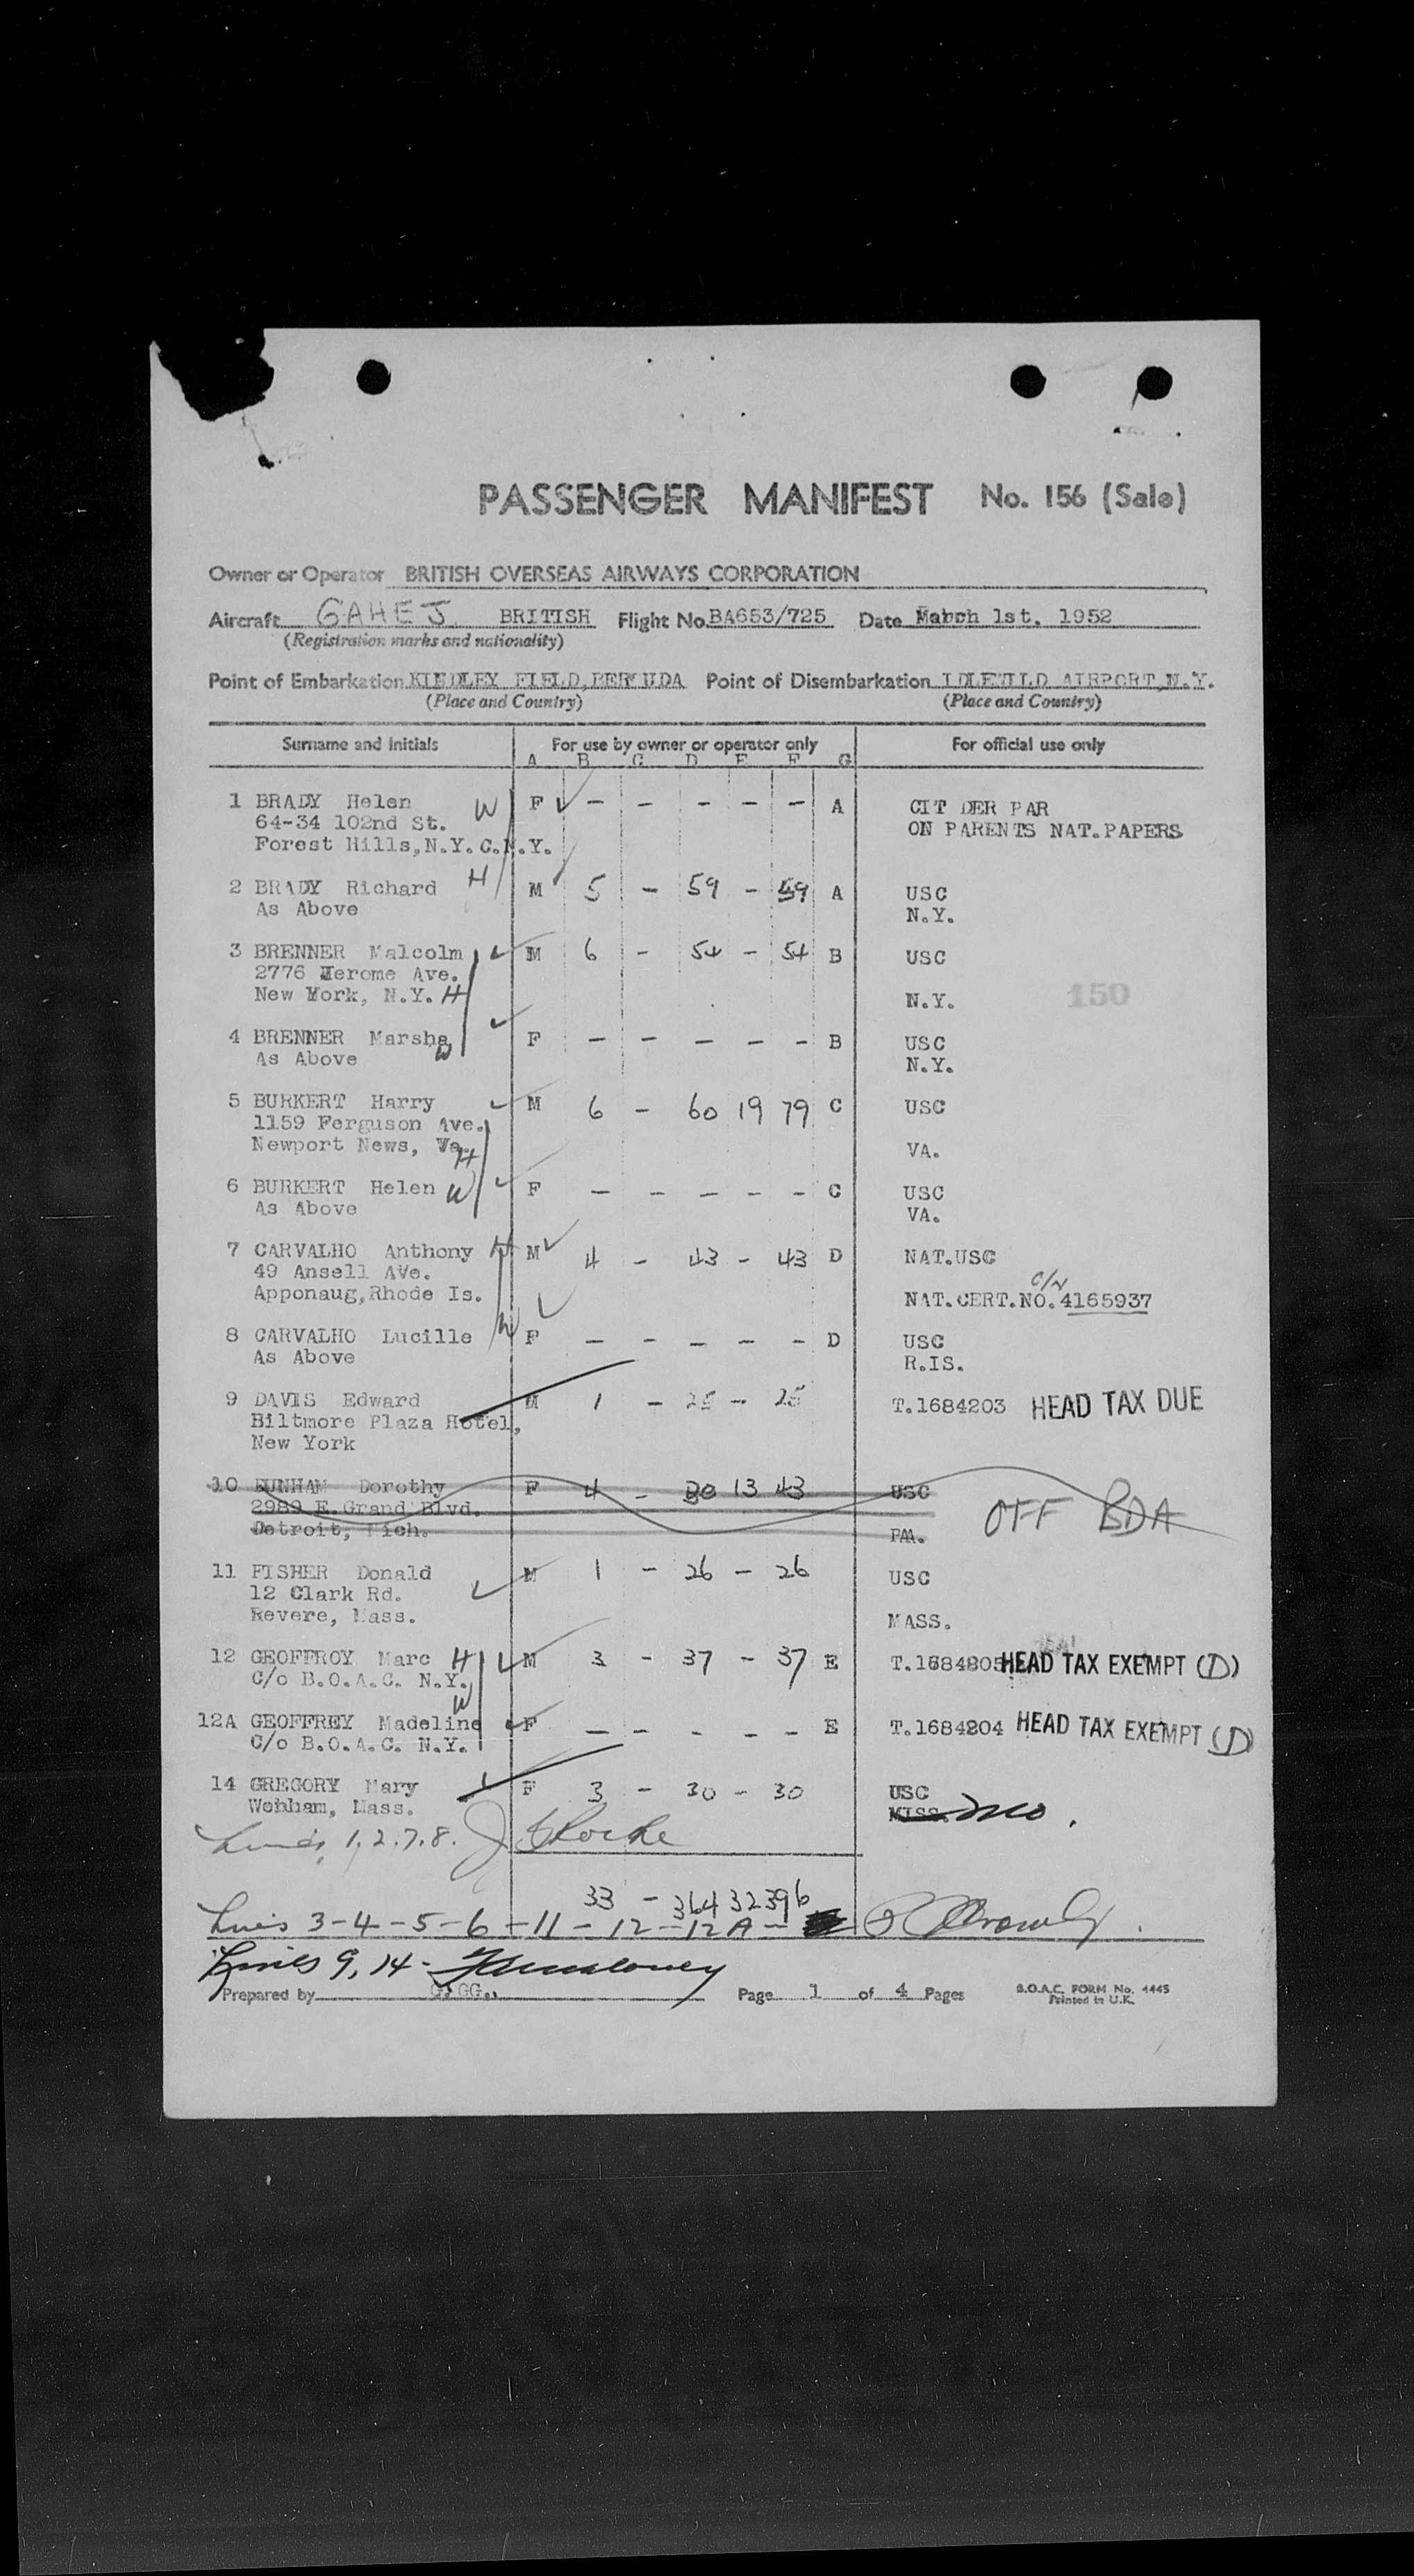 PASSENGER MANIFEST No. 156 (Sale)
Owner or Operator BRITISH OVERSEAS AIRWAYS CORPORATION
Aircraft GAHEJ BRITISH Flight No. BA653/725 Date March 1st. 1952
(Registration marks and nationality)
Point of Embarkation KINDLEY FIELD, BERMUDA Point of Disembarkation IDLEWILD AIRPORT, N.Y.
(Place and Country) (Place and Country)
Surname and Initials For use by owner or operator only For official use only
A B C D E F G
1 BRADY Helen W F - - - - - A CIT DER PAR
64-34 102nd St. ON PARENTS NAT.PAPERS
Forest Hills, N.Y.C.N.Y.
2 BRADY Richard H M 5 - 59 - 59 A USC
As Above N.Y.
3 BRENNER Malcolm M 6 - 54 - 54 B USC
2776 Jerome Ave.
New York, N.Y. H N.Y. 150
4 BRENNER Marsha W F - - - - - B USC
As Above N.Y.
5 BURKERT Harry M 6 - 60 19 79 C USC
1159 Ferguson Ave.
Newport News, Va. H VA.
6 BURKERT Helen W F - - - - - C USC
As Above VA.
7 CARVALHO Anthony H M 4 - 43 - 43 D NAT.USC
49 Ansell AVe. C/N
Apponaug, Rhode Is. NAT.CERT.NO.4165937
8 CARVALHO Lucille W F - - - - - D USC
As Above R.IS.
9 DAVIS Edward M 1 - 25 - 25 T.1684203 HEAD TAX DUE
Biltmore Plaza Hotel,
New York
10 DUNHAM Dorothy F 4 - 30 13 43 USC
2989 E. Grand Blvd. OFF BDA
Detroit, Mich.
11 FISHER Donald M 1 - 26 - 26 USC
12 Clark Rd.
Revere, Mass. MASS.
12 GEOFFROY Marc H M 3 - 37 - 37 E T.1684205 HEAD TAX EXEMPT (D)
C/o B.O.A.C. N.Y. W
12A GEOFFREY Madeline F - - - - - E T.1684204 HEAD TAX EXEMPT (D)
C/o B.O.A.C. N.Y.
14 GREGORY Mary F 3 - 30 - 30 USC
Mass. MISS. MO.
Lines, 1, 2, 7, 8.
33 - 364 32 396
Lines 3-4-5-6-11-12-12A-
Lines 9, 14 -
Prepared by Page 1 of 4 Pages B.O.A.C. FORM No. 4445
Printed in U.K.